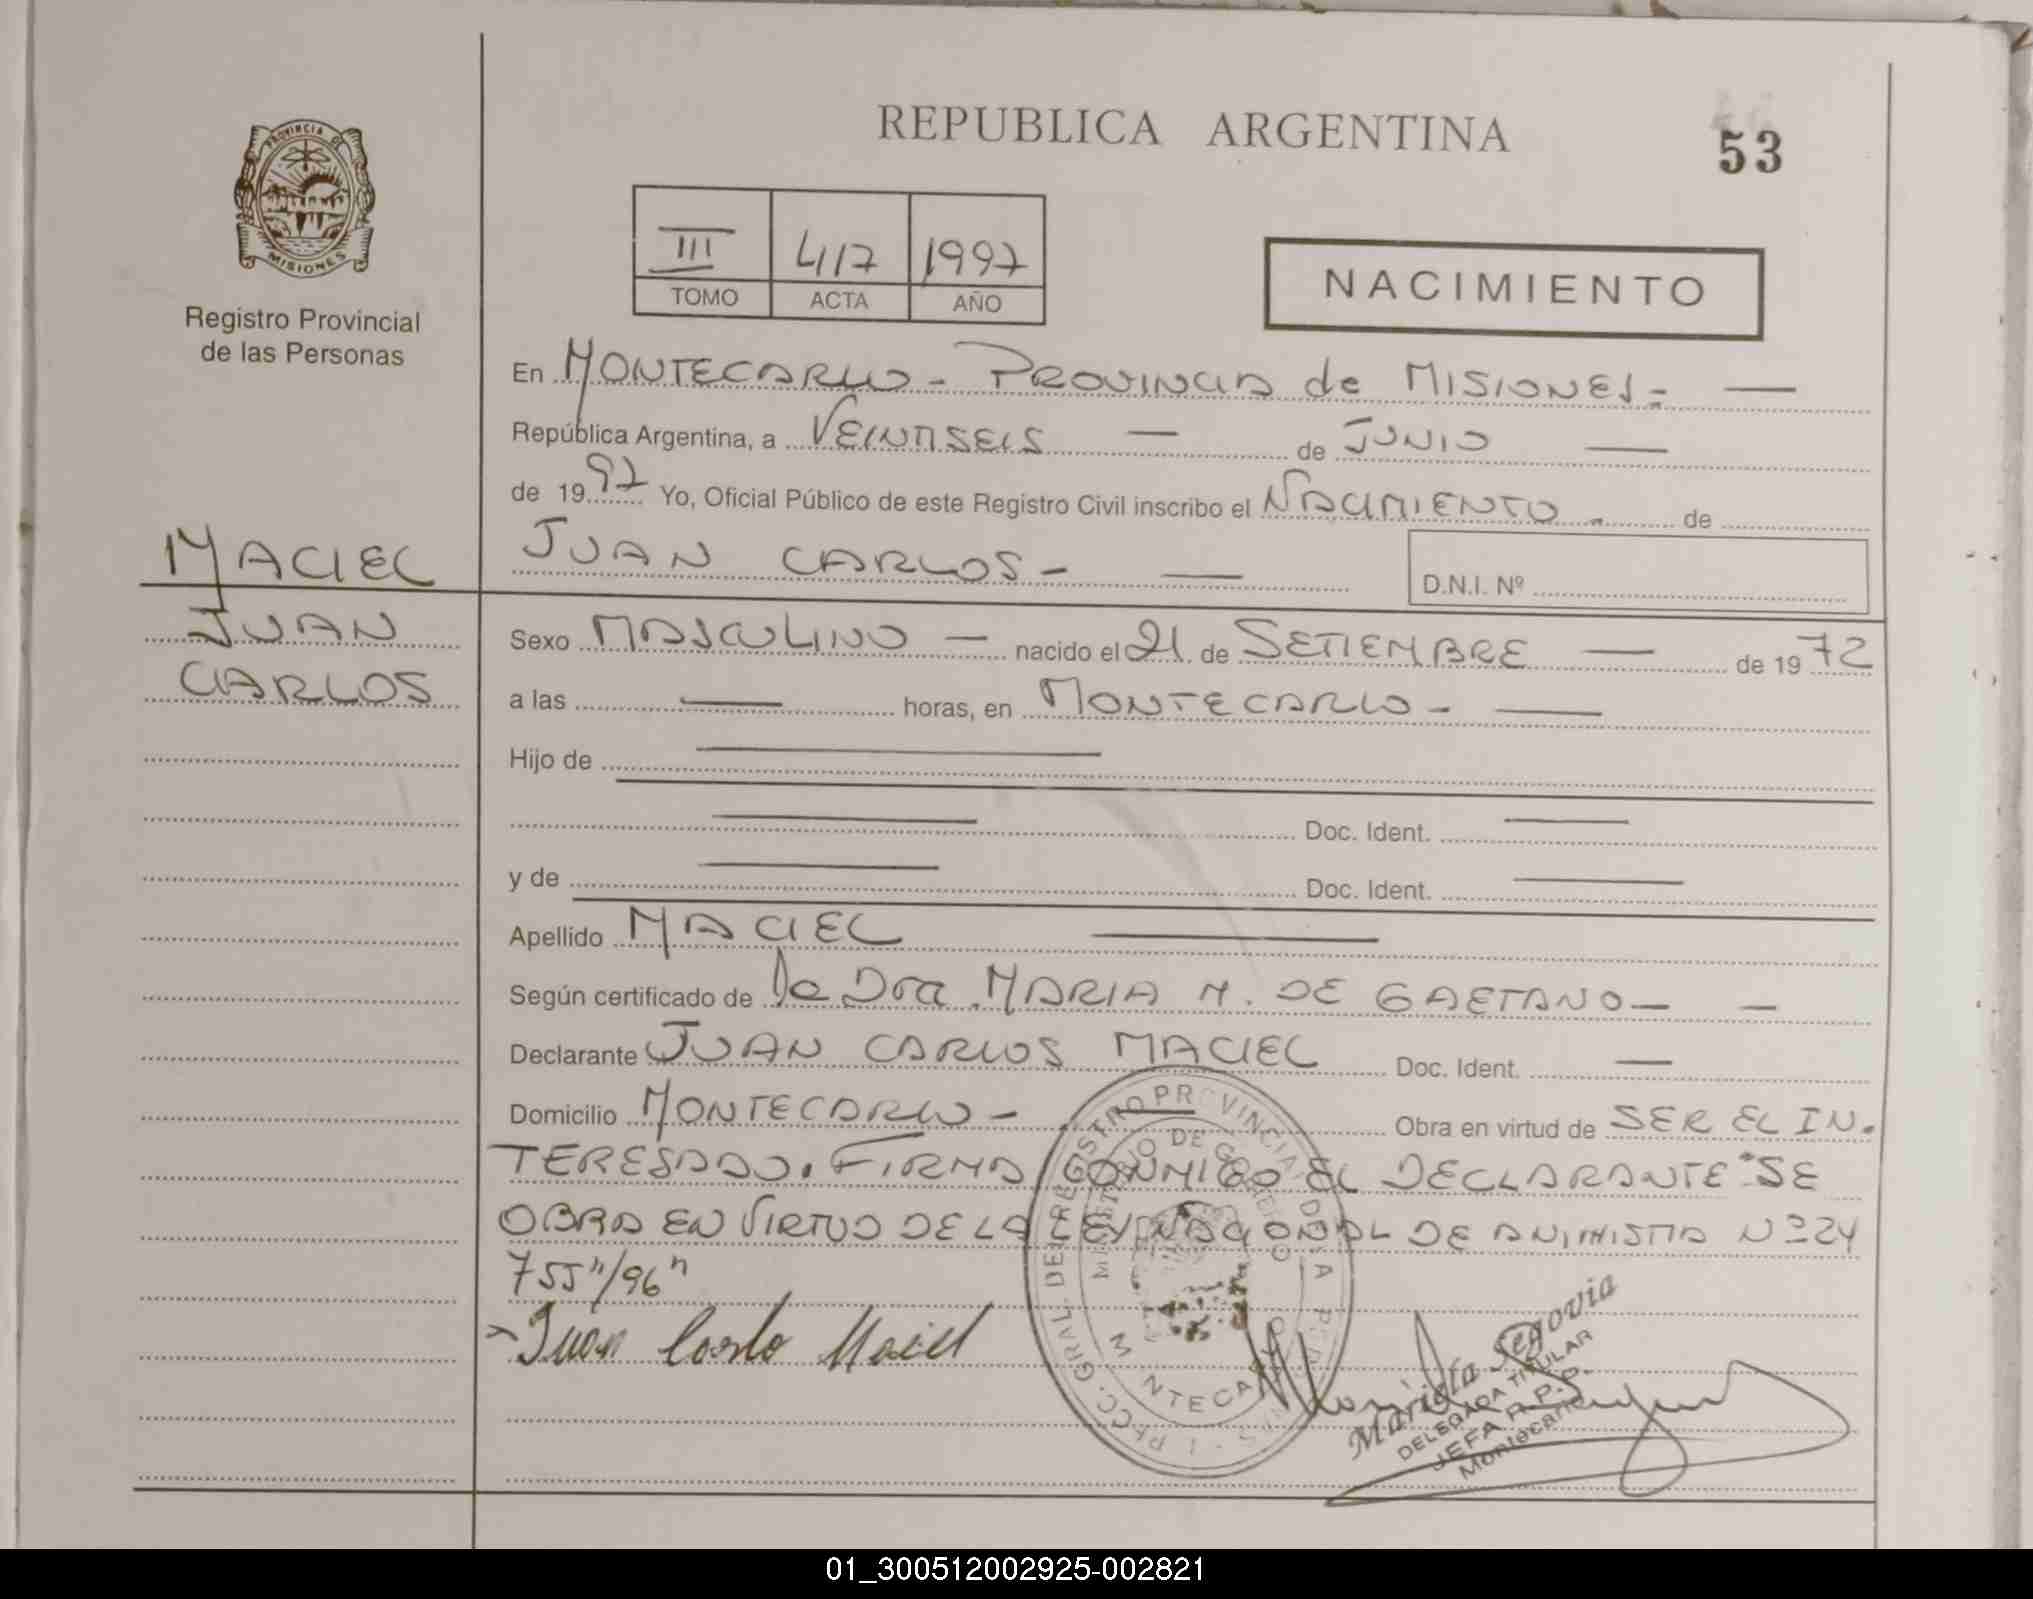 REPUBLICA ARGENTINA
53
PROVINCIA DE
MISIONES
Registro Provincial
de las Personas
III 417 1997
TOMO ACTA AÑO
NACIMIENTO
En MONTECARLO - PROVINCIA de MISIONES.- —
República Argentina, a VEINTISEIS — de JUNIO —
de 1997 Yo, Oficial Público de este Registro Civil inscribo el NACIMIENTO.- de
MACIEL
JUAN CARLOS - —
D.N.I. Nº
JUAN
CARLOS
Sexo MASCULINO — nacido el 21 de SETIEMBRE — de 1972
a las — horas, en MONTECARLO - —
Hijo de —
— Doc. Ident. —
y de — Doc. Ident. —
Apellido MACIEL —
Según certificado de la Dra. MARIA M. DE GAETANO — —
Declarante JUAN CARLOS MACIEL Doc. Ident. —
Domicilio MONTECARLO - — Obra en virtud de SER EL IN.
TERESADO. FIRMA CONMIGO EL DECLARANTE "SE
OBRA EN VIRTUD DE LA LEY NACIONAL DE ANIMISTIA Nº 24
755"/96"
Juan Carlo Maciel
MINISTERIO DE GOBIERNO
MONTECARLO
Marista Segovia
DELEGADA TITULAR
JEFA R.P.P.
Montecarlo
01_300512002925-002821